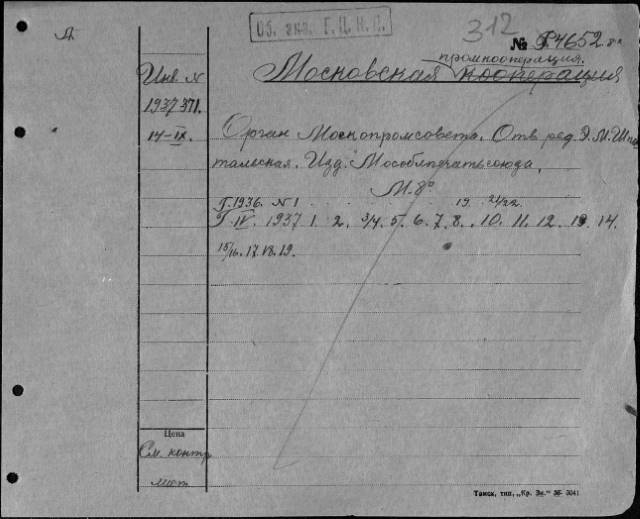 Об. экз. Г.Ц.К.П.
312
№ 4652 8°
А
промкооперация.
Московская кооперация
Инв. N
1937 371.
14-IX.
Орган Моспромсовета. Отв. ред. Э. М. Шпи
тальская. Изд. Мособлпечатьсоюза.
М. 8°
Г. 1936. N 1 . . . . . 19. 21/22.
Г. IV. 1937 1. 2. 3/4. 5. 6. 7. 8. . 10. 11. 12. 13. 14.
15/16. 17. 18. 19.
Цена
См. контр
Томск, тип. „Кр. Зн.“ 3041